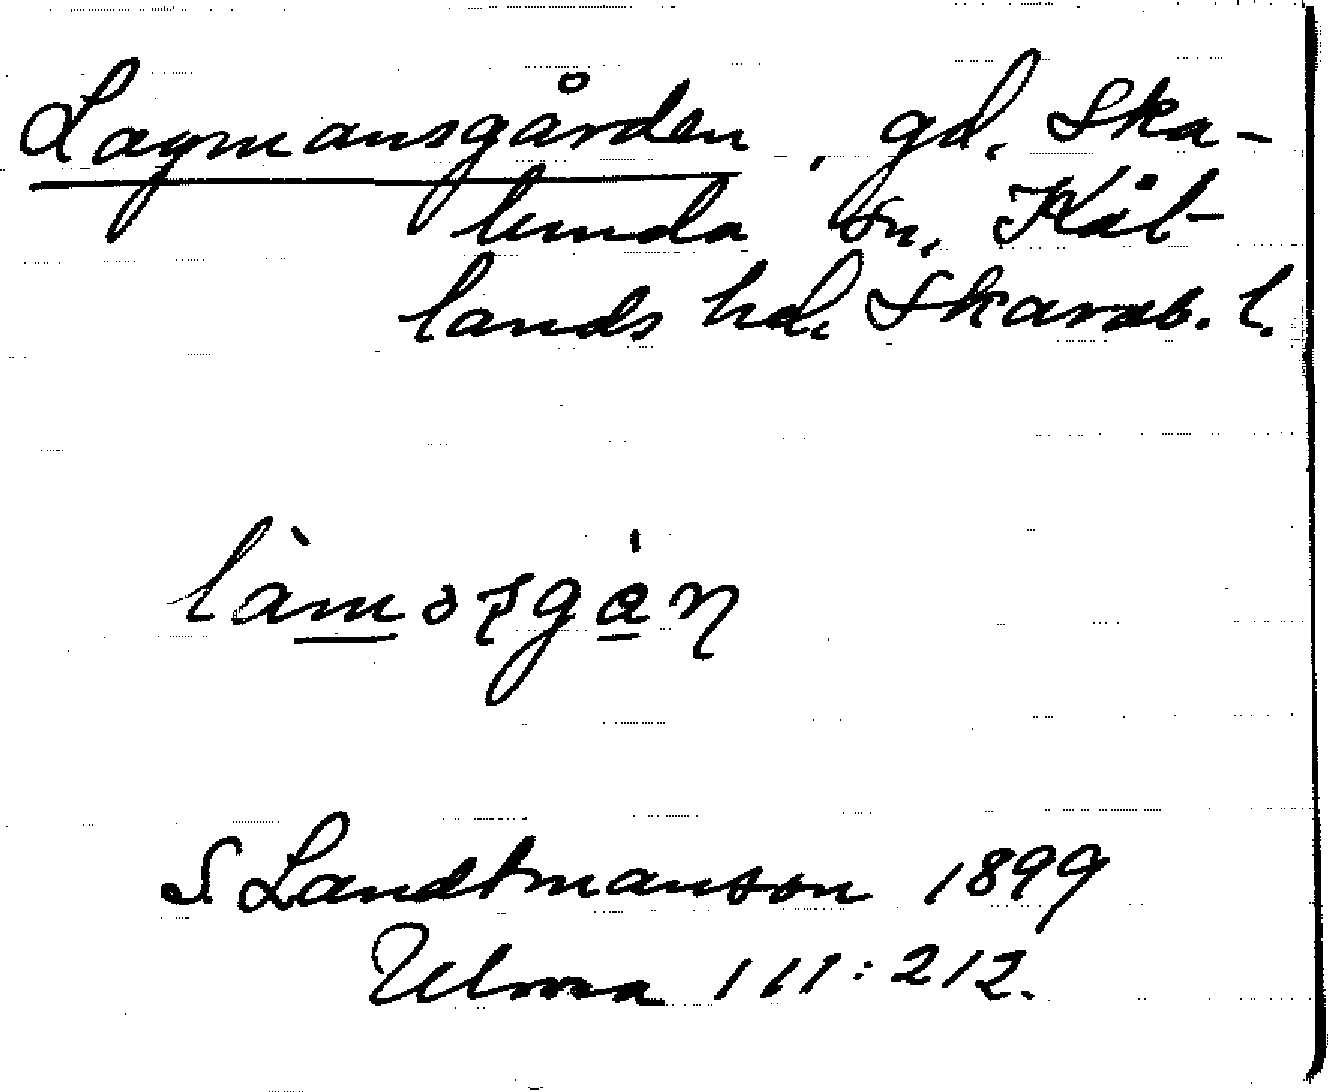 Lagmansgården, gd, Ska-
lunda sn, Kål-
lands hd, Skarab. l.
làmɔsga̍n
S. Landtmanson 1899
Ulma 111:212.